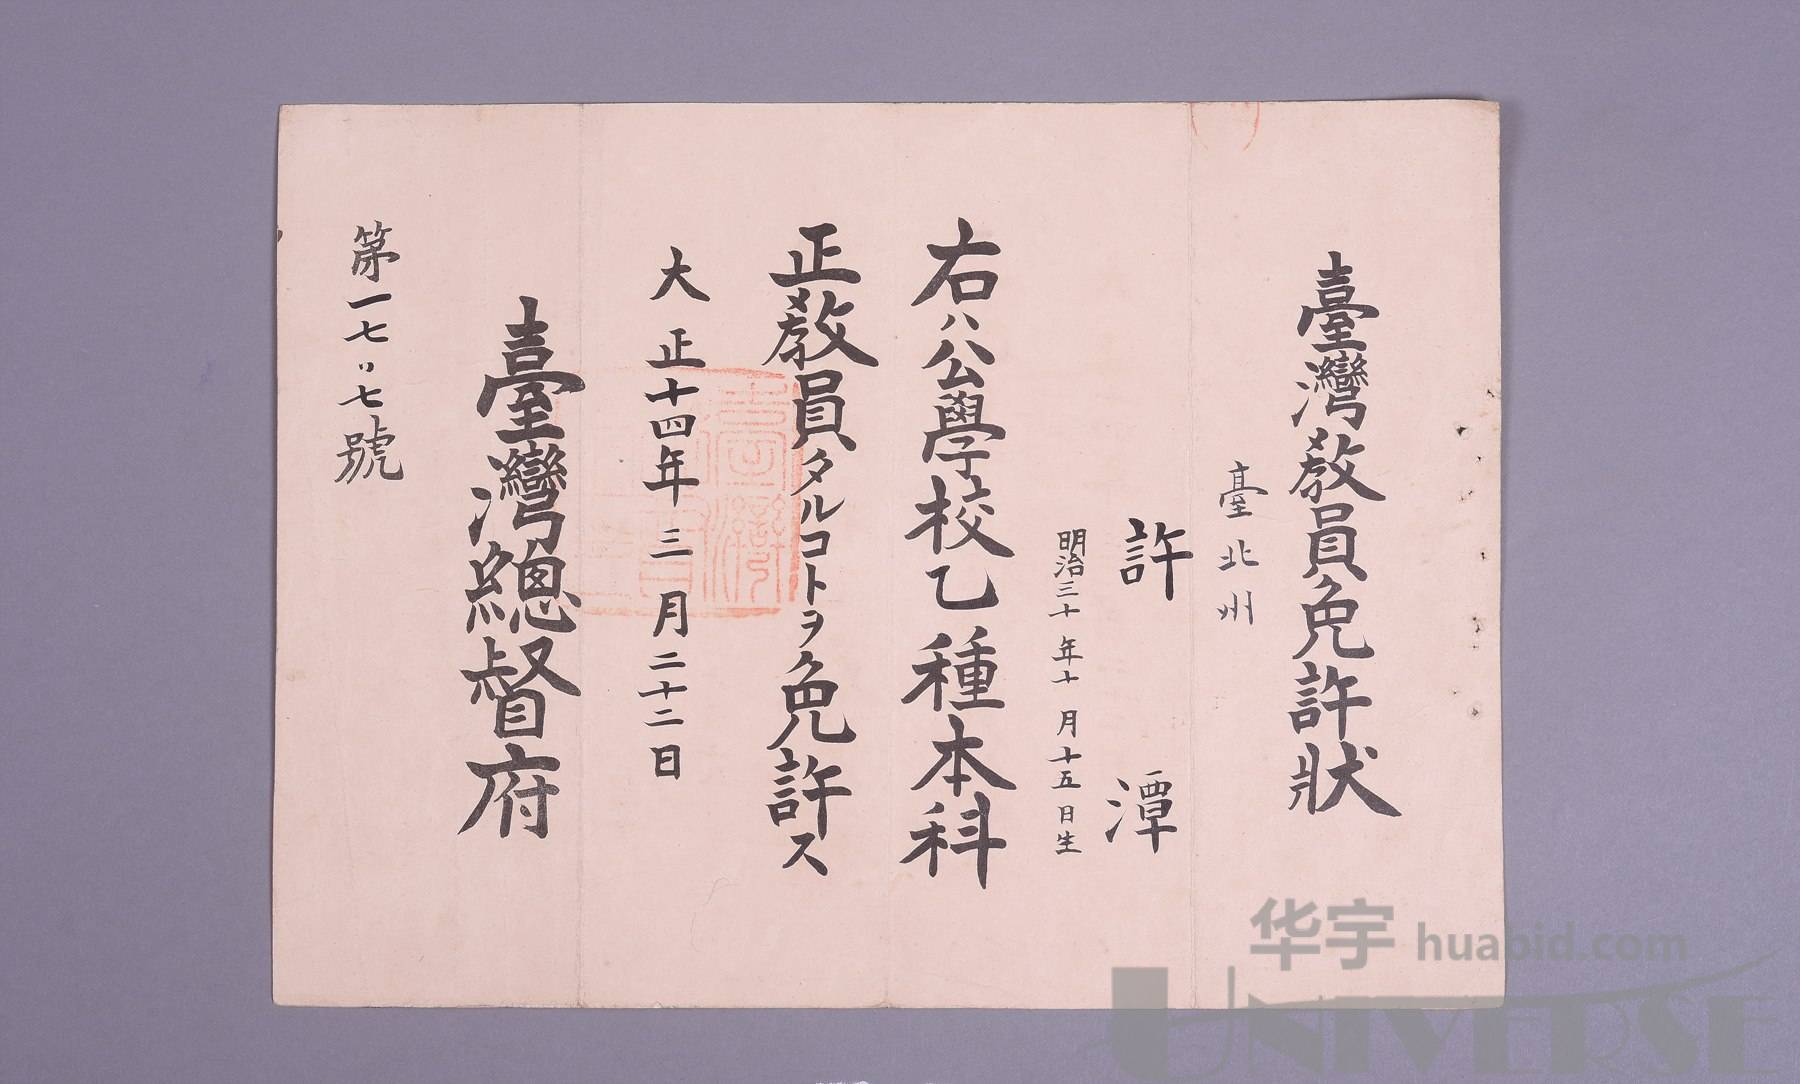 臺灣教員免許狀
臺北州
許 潭
明治三十年十月十五日生
右ハ公學校乙種本科
正教員タルコトヲ免許ス
大正十四年三月二十二日
臺灣總督府
第一七〃七號
华宇 huabid.com
UNIVERSE